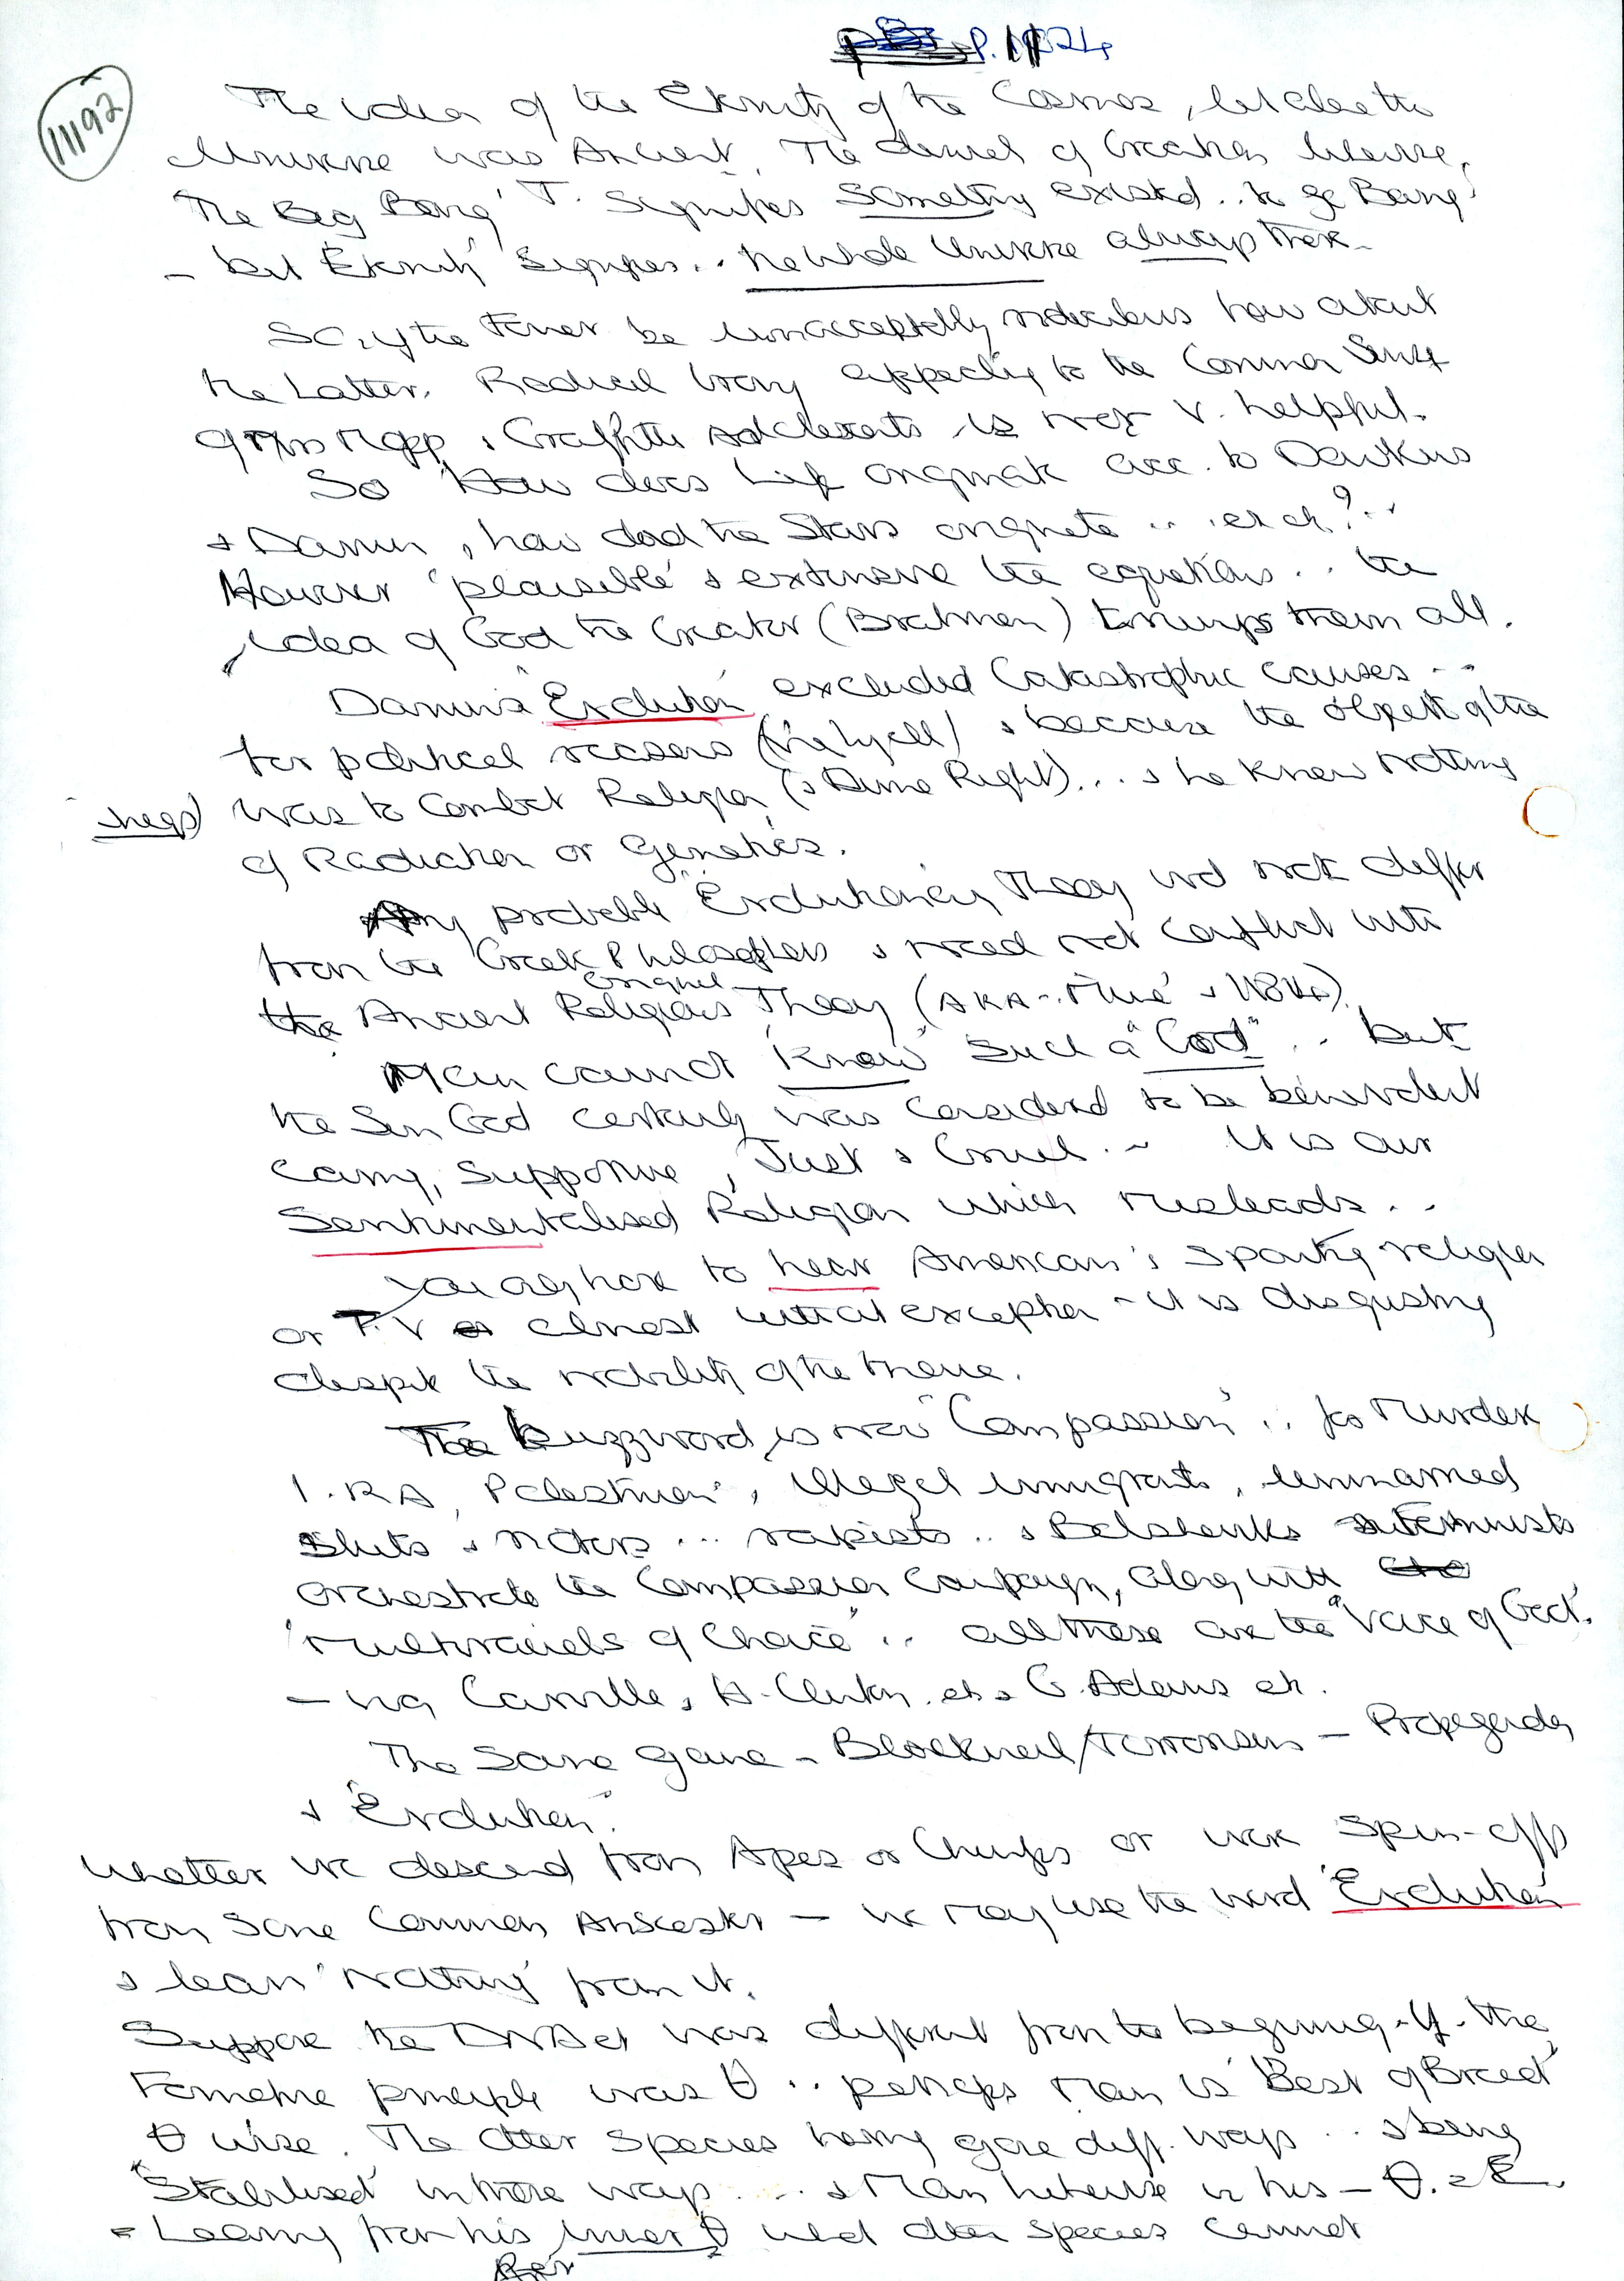 P. 11524
11192
The idea of the Eternity of the Cosmos, let alone the
Universe was Ancient. The denial of Creation likewise.
'The Big Bang' T. Signifies Something existed .. to go Bang'
- but 'Eternity' Signifies .. the whole Universe always there -
So, if the Former be unacceptably ridiculous how about
the Latter. Radical Irony appealing to the Common Sense
of & Graffitti Adolescents is not v. helpful.
So How does Life originate acc. to Dawkins
& Darwin, how did the Stars originate .. etc? ..
However 'plausible' & extensive the equations .. the
idea of God the Creator (Brahman) trumps them all.
Darwin's "Evolution" excluded Catastrophic causes ..
for political reasons (via Lyell) & because the object of the
was to Combat Religion (& Divine Right) ... & he knew nothing
of Radiation or Genetics.
Any probable "Evolutionary" Theory wd not differ
from the Greek Philosophers & need not conflict with
the Ancient Original Religious Theory (AKA - 'Mine'
Man cannot 'Know' Such a "God" .. but
the Sun God certainly was Considered to be benevolent
caring, supportive, Just & Cruel .. It is our
Sentimentalised Religion which misleads ..
You only have to hear American's spouting religion
on T.V almost without exception - it is disgusting
despite the nobility of the theme.
The buzzword is now "Compassion" .. for Murder
I.R.A, 'Palestinian', Illegal immigrants, unmarried
Sluts & rioters ... rapists .. & Feminists
Orchestrate the Compassion Campaign, along with
'Multiracials of Choice' .. all these are the "Voice of God".
- viz Camille, H. Clinton, etc & G. Adams etc.
The Same game - Blackmail/Terrorism - Propaganda
& "Evolution".
Whether we descend from Apes or Chimps or were Spin-offs
from Some Common Ancestor - we may use the word 'Evolution'
& learn 'nothing' from it.
Suppose the DNA etc was different from the beginning. If the
Formative principle was θ .. perhaps Man is 'Best of Breed'
θ wise. The other Species having gone diff. ways .. & being
"Stabilised" in those ways .... & Man likewise in his - θ. = E
= Learning from his inner θ what other species cannot